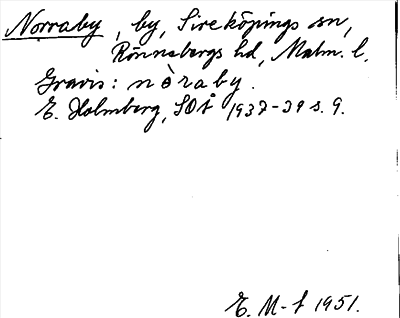 Norraby, by, Sireköpings sn,
Rönnebergs hd, Malm. l.
Gravis: nòraby.
E. Holmberg, SOÅ 1937-39 s. 9.
E. M-t 1951.